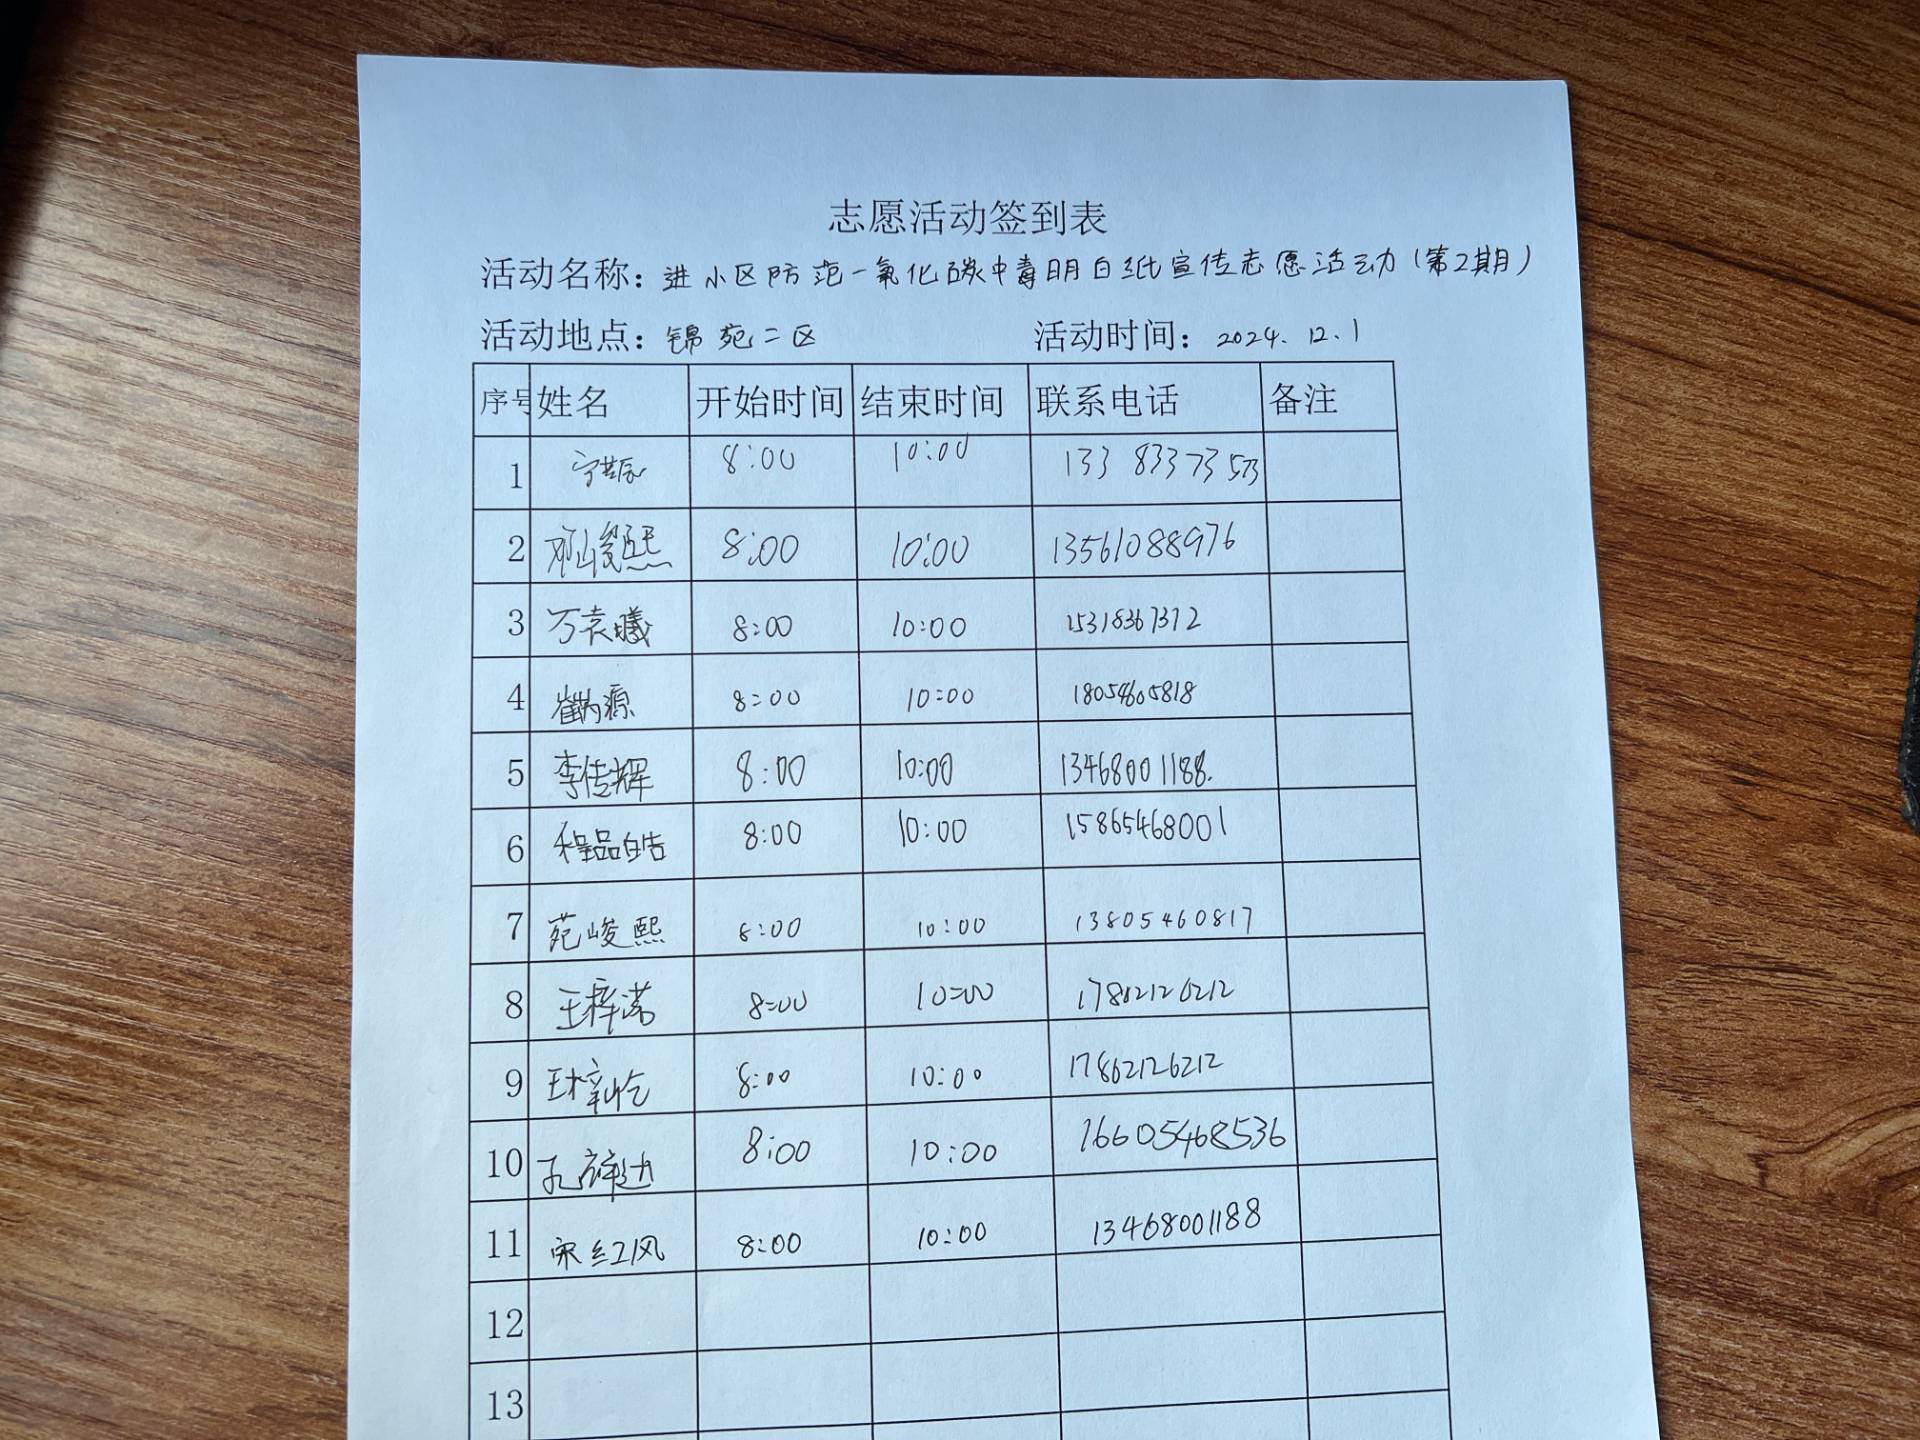 志愿活动签到表
活动名称：进小区防范一氧化碳中毒明白纸宣传志愿活动（第2期）
活动地点：锦苑二区 活动时间：2024.12.1
序号 姓名 开始时间 结束时间 联系电话 备注
1 8:00 10:00 13383373573
2 邓峻熙 8:00 10:00 13561088976
3 万袁曦 8:00 10:00 15318367372
4 8:00 10:00 18054605818
5 李传辉 8:00 10:00 13468001188.
6 程品皓 8:00 10:00 15865468001
7 苑峻熙 8:00 10:00 13805460817
8 王梓诺 8:00 10:00 17862126212
9 王梓屹 8:00 10:00 17862126212
10 8:00 10:00 16605468536
11 宋红风 8:00 10:00 13468001188
12
13